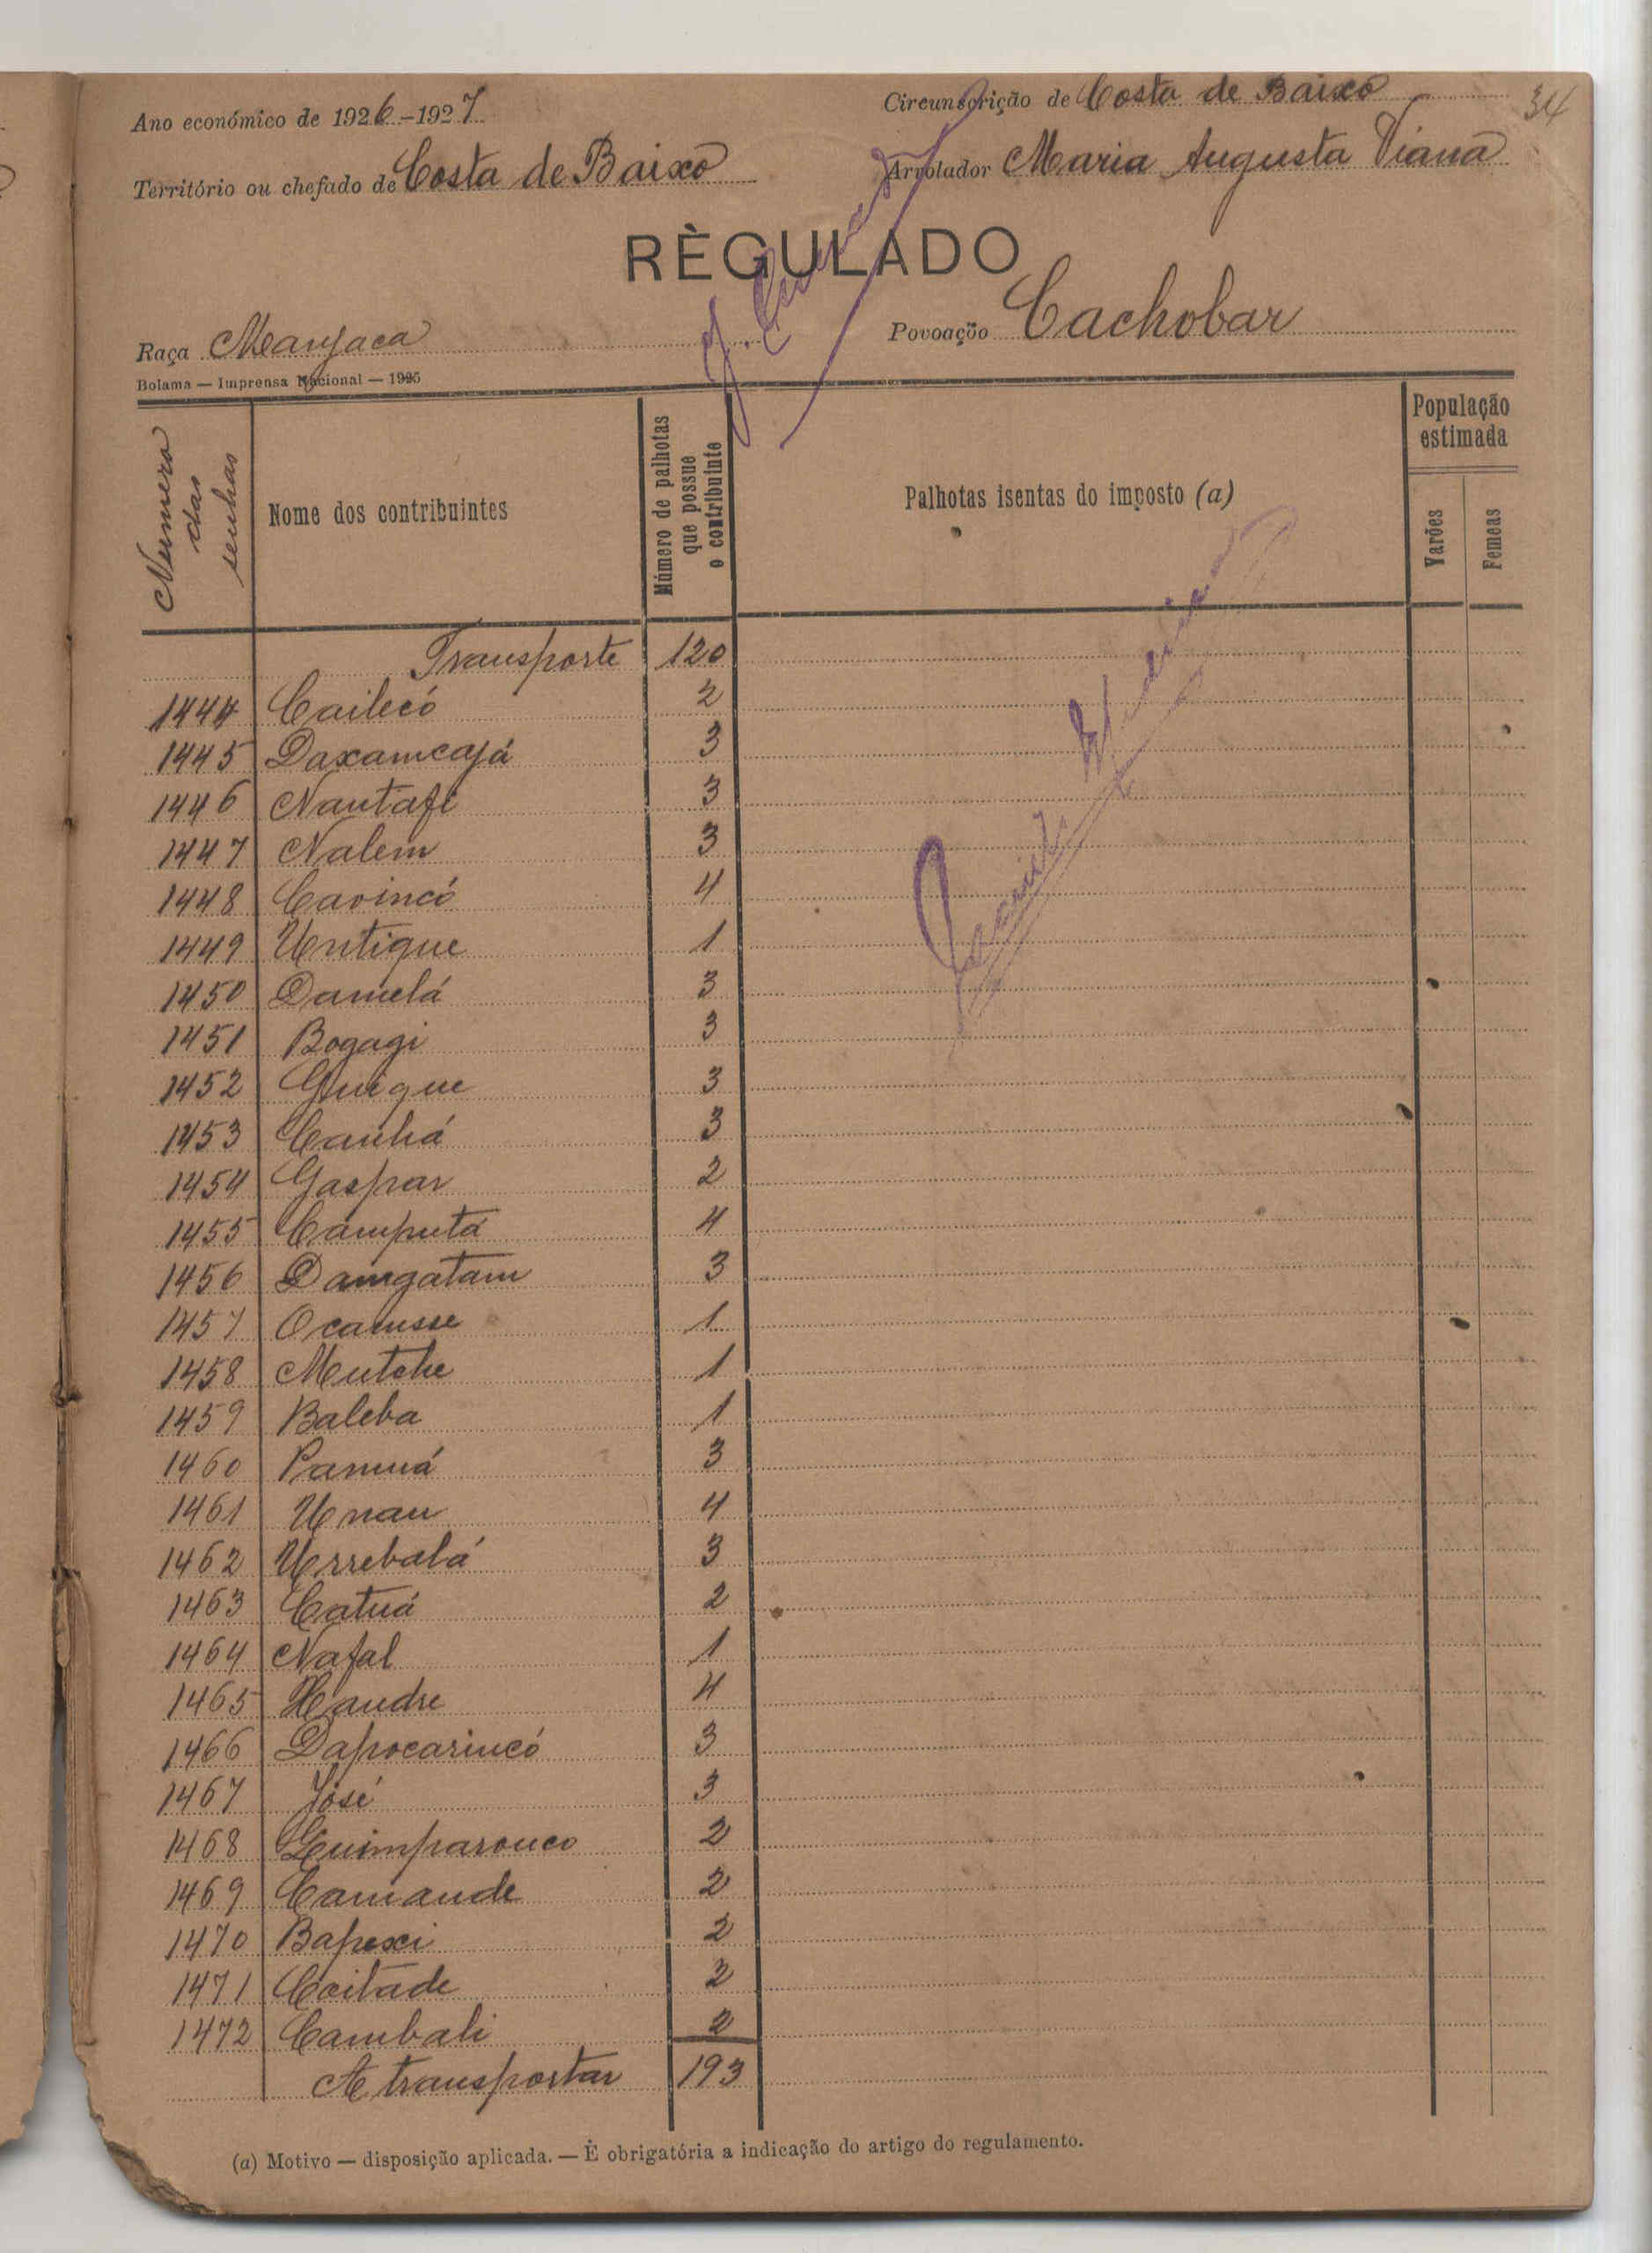 Ano económico de 1926-1927
Circunscrição de Costa de Baixo
34
Território ou chefado de Costa de Baixo
Arrolador Maria Augusta Viana
RÈGULADO
Raça Manjaca
Povoação Cachobar
Bolama — Imprensa Nacional — 1925
Numero das senhas
Nome dos contribuintes
Número de palhotas que possue o contribuinte
Palhotas isentas do imposto (a)
População estimada
Varões
Femeas
Transporte 120
1444 Cailecó 2
1445 Daxamcajá 3
1446 Nantafe 3
1447 Nalem 3
1448 Cavincó 4
1449 Untique 1
1450 Damelá 3
1451 Bogagi 3
1452 Guigue 3
1453 Canhá 3
1454 Gaspar 2
1455 Camputá 4
1456 Damgatam 3
1457 Ocanusse 1
1458 Mutche 1
1459 Baleba 1
1460 Pamuá 3
1461 Unau 4
1462 Urrebalá 3
1463 Catuá 2
1464 Nafal 1
1465 Handre 4
1466 Dapocarincó 3
1467 José 3
1468 Guimparouco 2
1469 Camande 2
1470 Bapexi 2
1471 Coitade 2
1472 Cambali 2
A transportar 193
(a) Motivo — disposição aplicada. — È obrigatória a indicação do artigo do regulamento.